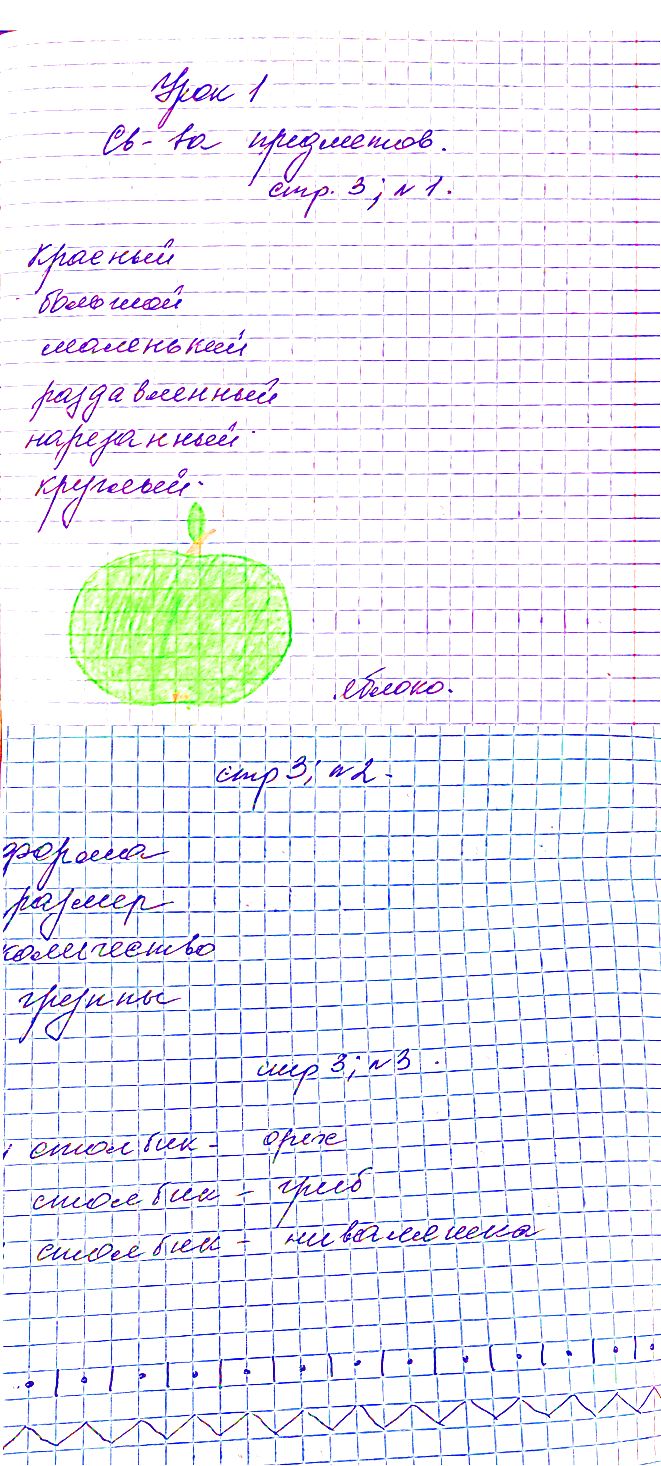 Урок 1
Св-ва предметов.
стр. 3; №1.
красный
большой
маленький
раздавленный
нарезанный
круглый.
яблоко.
стр 3; №2.
форма
размер
количество
группы
стр 3; №3.
столбик - орех
столбик - гриб
столбик -ниваляшка